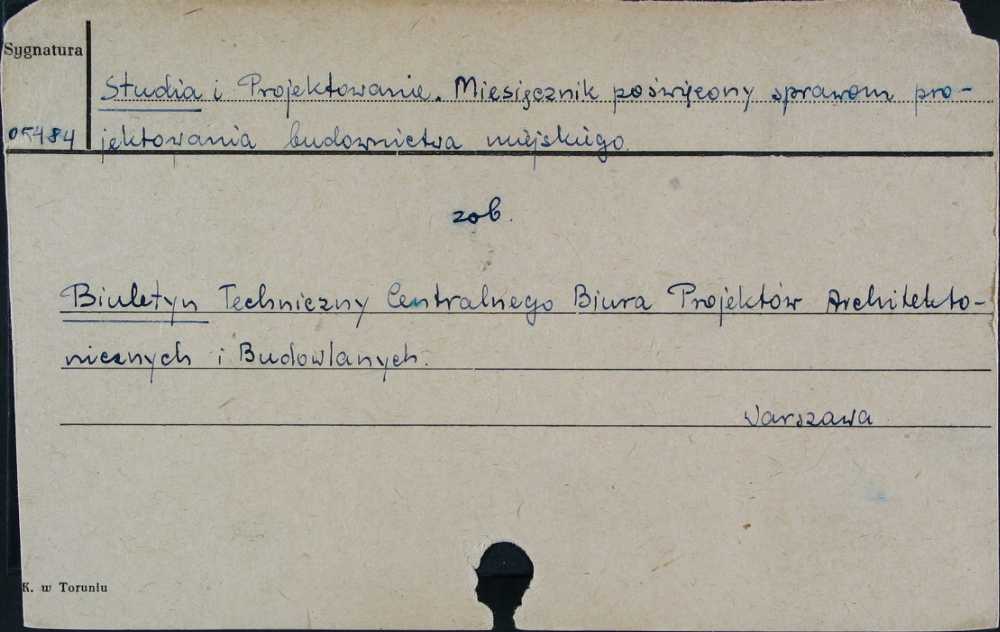 Sygnatura
Studia i Projektowanie. Miesięcznik poświęcony sprawom pro-
05484 jektowania budownictwa miejskiego.
zob.
Biuletyn Techniczny Centralnego Biura Projektów Architekto-
nicznych i Budowlanych.
Warszawa
K. w Toruniu